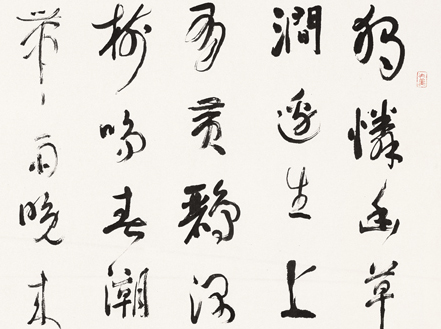 獨憐幽草
澗邊生上
有黃鸝深
樹鳴春潮
帶雨晚来